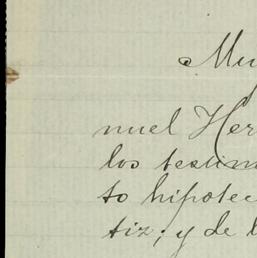 Mu
nuel Her
los testim
to hipotec
tiz; y de l